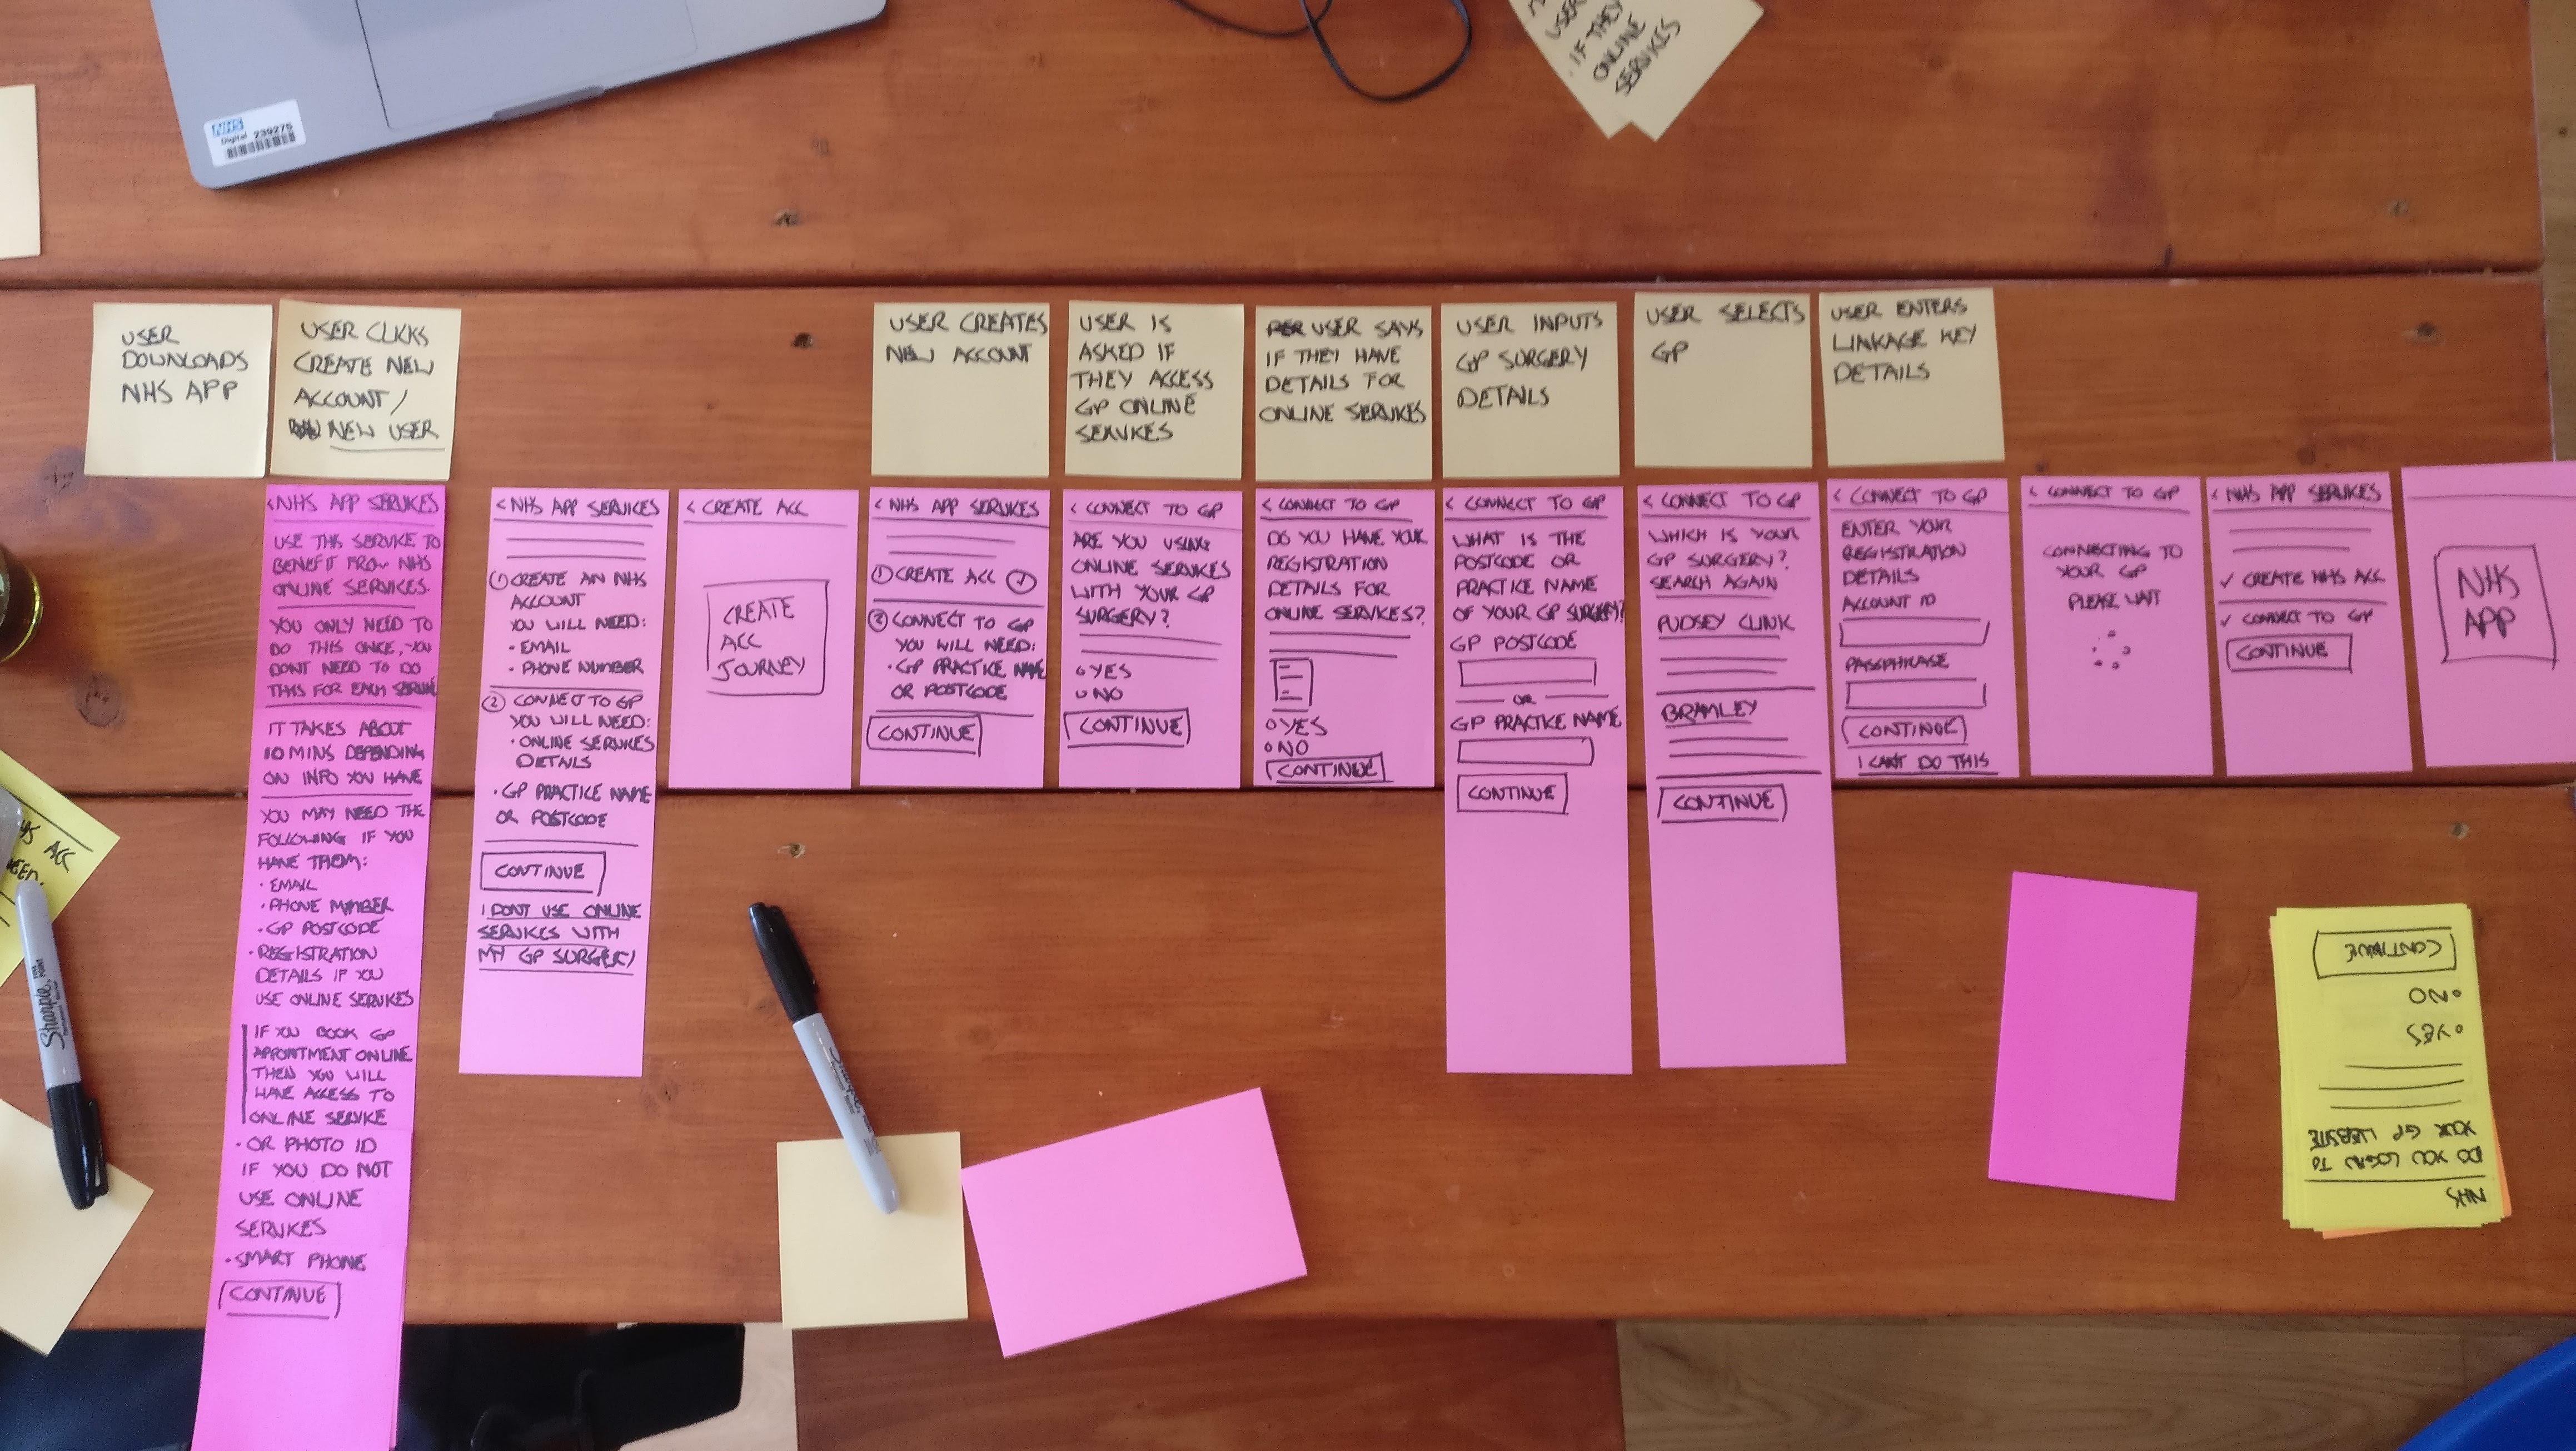 NHS
Digital 239275
USER
IF THEY
ONLINE
SERVICES
USER
DOWNLOADS
NHS APP
USER CLICKS
CREATE NEW
ACCOUNT /
NEW USER
USER CREATES
NEW ACCOUNT
USER IS
ASKED IF
THEY ACCESS
GP ONLINE
SERVICES
USER SAYS
IF THEY HAVE
DETAILS FOR
ONLINE SERVICES
USER INPUTS
GP SURGERY
DETAILS
USER SELECTS
GP
USER ENTERS
LINKAGE KEY
DETAILS
< NHS APP SERVICES
USE THIS SERVICE TO
BENEFIT FROM NHS
ONLINE SERVICES.
YOU ONLY NEED TO
DO THIS ONCE, YOU
DONT NEED TO DO
THIS FOR EACH SERVICE
IT TAKES ABOUT
10 MINS DEPENDING
ON INFO YOU HAVE
YOU MAY NEED THE
FOLLOWING IF YOU
HAVE THEM:
• EMAIL
• PHONE NUMBER
• GP POSTCODE
• REGISTRATION
DETAILS IF YOU
USE ONLINE SERVICES
IF YOU BOOK GP
APPOINTMENT ONLINE
THEN YOU WILL
HAVE ACCESS TO
ONLINE SERVICE
• OR PHOTO ID
IF YOU DO NOT
USE ONLINE
SERVICES
• SMART PHONE
CONTINUE
< NHS APP SERVICES
① CREATE AN NHS
ACCOUNT
YOU WILL NEED:
• EMAIL
• PHONE NUMBER
② CONNECT TO GP
YOU WILL NEED:
• ONLINE SERVICES
DETAILS
• GP PRACTICE NAME
OR POSTCODE
CONTINUE
I DONT USE ONLINE
SERVICES WITH
MY GP SURGERY
< CREATE ACC
CREATE
ACC
JOURNEY
< NHS APP SERVICES
① CREATE ACC ✓
② CONNECT TO GP
YOU WILL NEED:
• GP PRACTICE NAME
OR POSTCODE
CONTINUE
< CONNECT TO GP
ARE YOU USING
ONLINE SERVICES
WITH YOUR GP
SURGERY?
○ YES
○ NO
CONTINUE
< CONNECT TO GP
DO YOU HAVE YOUR
REGISTRATION
DETAILS FOR
ONLINE SERVICES?
○ YES
○ NO
CONTINUE
< CONNECT TO GP
WHAT IS THE
POSTCODE OR
PRACTICE NAME
OF YOUR GP SURGERY?
GP POSTCODE
OR
GP PRACTICE NAME
CONTINUE
< CONNECT TO GP
WHICH IS YOUR
GP SURGERY?
SEARCH AGAIN
PUDSEY CLINIC
BRAMLEY
CONTINUE
< CONNECT TO GP
ENTER YOUR
REGISTRATION
DETAILS
ACCOUNT ID
PASSPHRASE
CONTINUE
I CANT DO THIS
< CONNECT TO GP
CONNECTING TO
YOUR GP
PLEASE WAIT
< NHS APP SERVICES
✓ CREATE NHS ACC
✓ CONNECT TO GP
CONTINUE
NHS
APP
ACC
NEED:
Sharpie
NHS
DO YOU LOGIN TO
YOUR GP WEBSITE
○ YES
○ NO
CONTINUE